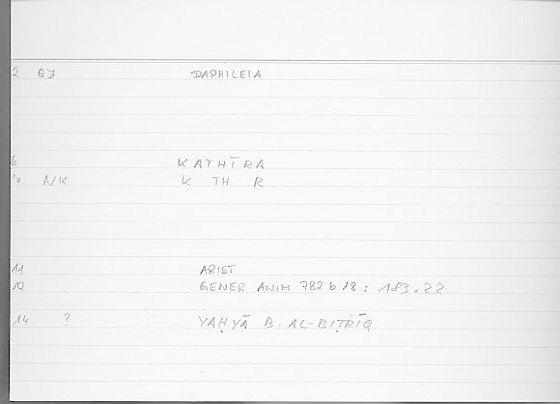 2 QJ DAPHILEIA
6 KATHĪRA
7 NK K TH R
11 ARIST
12 GENER ANIM 782 b 18 : 183.22
14 ? YAḤYĀ B. AL-BIṬRĪQ